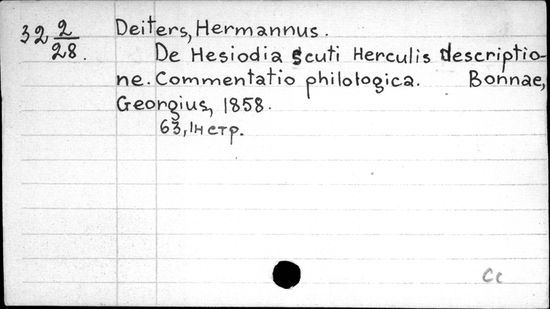 32 2/28.
Deiters, Hermannus.
De Hesiodia scuti Herculis descriptio-
ne. Commentatio philologica. Bonnae,
Georgius, 1858.
63, 1н стр.
Cc